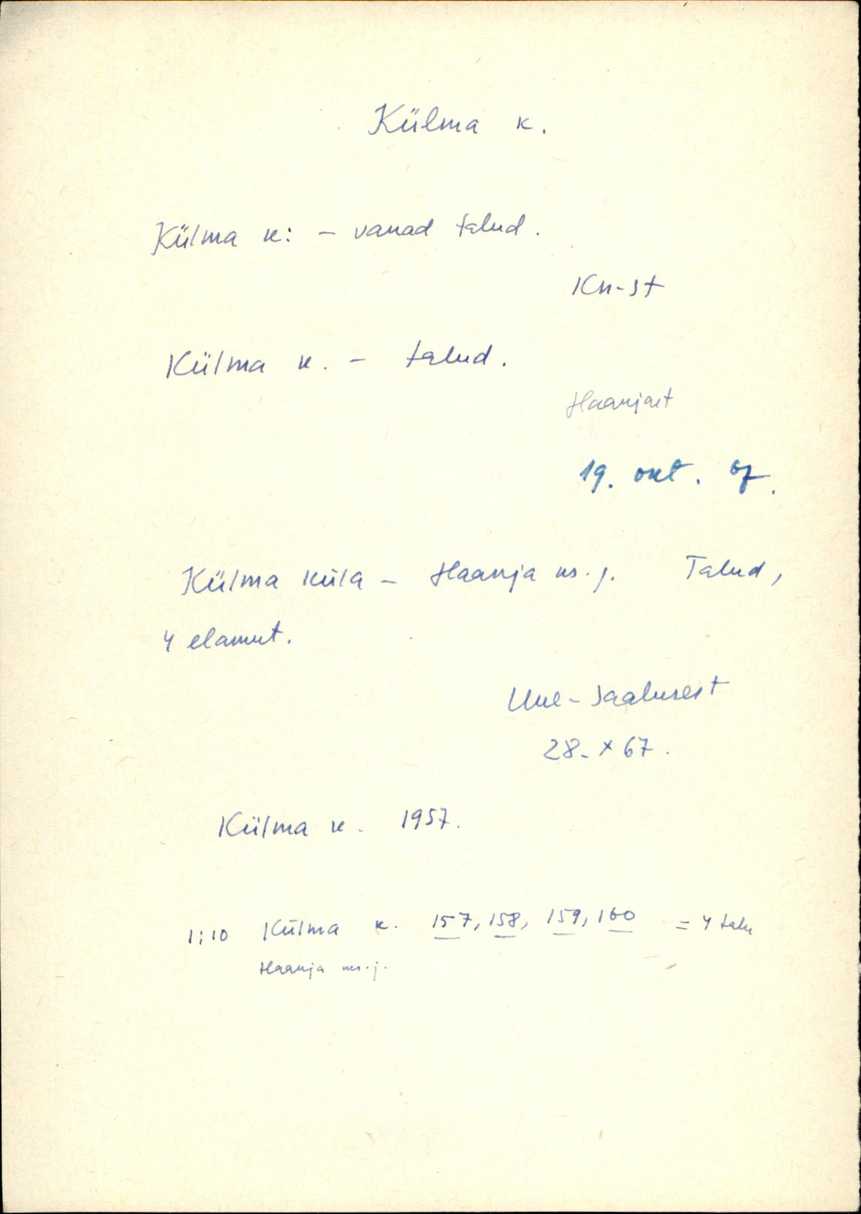 Külma k.
Külma k: - vanad talud.
Kn-st
Külma k. - talud.
Haanjast
19. okt. 67.
Külma küla - Haanja ns. j. Talud,
4 elamut.
Uue-Saalusest
28. X 67.
Külma k. 1957.
1:10 Külma k. 157, 158, 159, 160 = 4 talu
Haanja ns.j.